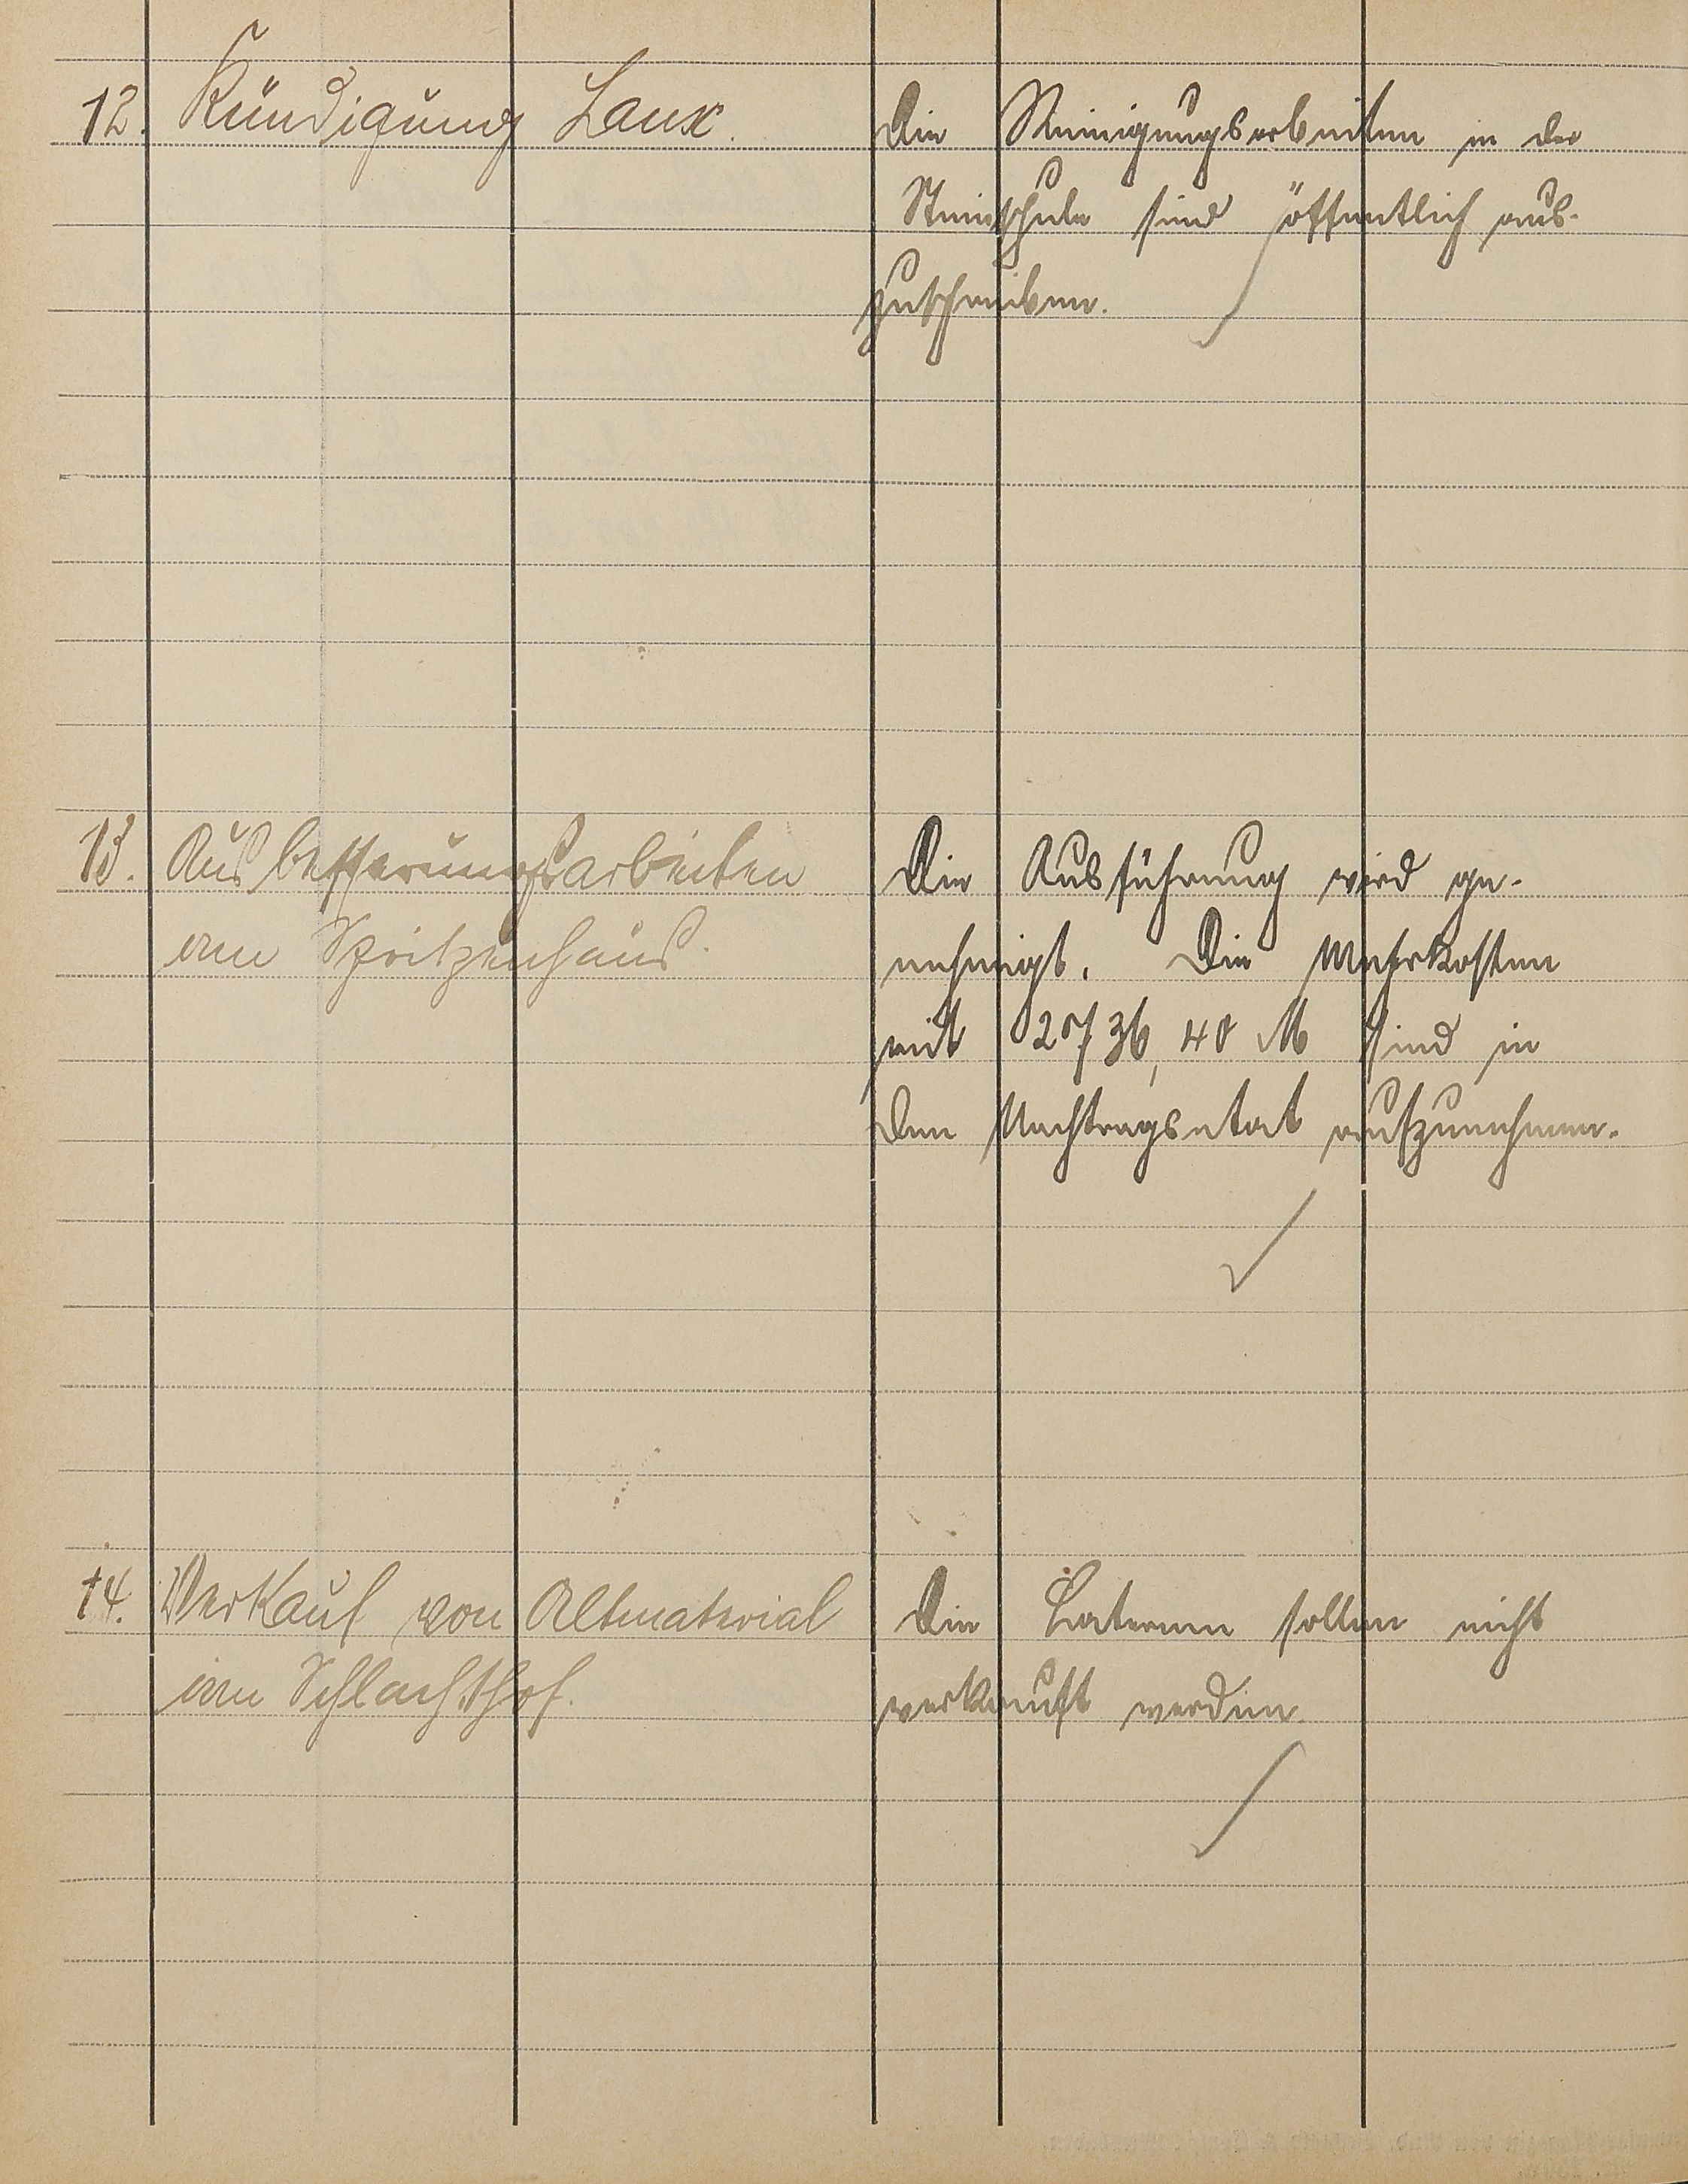 12. Kündigung Laux.
Die Reinigungsarbeiten in der
Steinschule sind öffentlich aus-
zuschreiben.
13. Ausbesserungsarbeiten
am Spritzenhaus.
Die Ausführung wird ge-
nehmigt. Die Mehrkosten
mit 2736,40 M sind in
den Nachtragsetat aufzunehmen.
14. Verkauf von Altmaterial
im Schlachthof.
Die Laternen sollen nicht
verkauft werden.